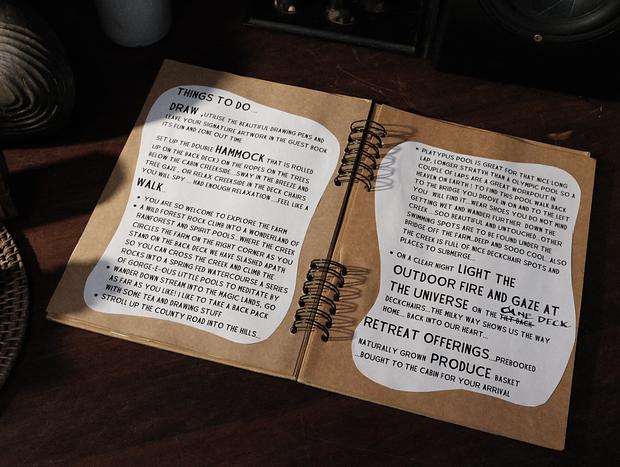 THINGS TO DO...
DRAW , UTILISE THE BEAUTIFUL DRAWING PENS AND
LEAVE YOUR SIGNATURE ARTWORK IN THE GUEST BOOK
ITS FUN AND ZONE OUT TIME
SET UP THE DOUBLE HAMMOCK THAT IS ROLLED
UP ON THE BACK DECK) ON THE ROPES ON THE TREES
BELOW THE CABIN CREEKSIDE ...SWAY IN THE BREEZE AND
TREE GAZE , OR RELAX CREEKSIDE IN THE DECK CHAIRS
YOU WILL SPY... HAD ENOUGH RELAXATION ...FEEL LIKE A
WALK...
• YOU ARE SO WELCOME TO EXPLORE THE FARM
• A WILD FOREST ROCK CLIMB INTO A WONDERLAND OF
RAINFOREST AND SPIRIT POOLS.. WHERE THE CREEK
CIRCLES THE FARM ON THE RIGHT CORNER AS YOU
STAND ON THE BACK DECK WE HAVE SLASHED APATH
SO YOU CAN CROSS THE CREEK AND CLIMB THE
ROCKS INTO A SPRING FED WATERCOURSE A SERIES
OF GORGE-E-OUS LITTLE POOLS TO MEDITATE BY
• WANDER DOWN STREAM INTO THE MAGIC LANDS, GO
AS FAR AS YOU LIKE! I LIKE TO TAKE A BACK PACK
WITH SOME TEA AND DRAWING STUFF
• STROLL UP THE COUNTY ROAD INTO THE HILLS...
• PLATYPUS POOL IS GREAT FOR THAT NICE LONG
LAP, LONGER STRATCH THAN A OLYMPIC POOL SO A
COUPLE OF LAPS ARE A GREAT WORKOUT IN
HEAVEN ON EARTH ! TO FIND THIS POOL WALK BACK
TO THE BRIDGE YOU DROVE IN ON AND TO THE LEFT
YOU WILL FIND IT ...WEAR SHOES YOU DO NOT MIND
GETTING WET AND WANDER FURTHER DOWN THE
CREEK ...SOO BEAUTIFUL AND UNTOUCHED...OTHER
SWIMMING SPOTS ARE TO BE FOUND UNDER THE
BRIDGE OFF THE FARM..DEEP AND SOOO COOL..ALSO
THE CREEK IS FULL OF NICE DECKCHAIR SPOTS AND
PLACES TO SUBMERGE...
• ON A CLEAR NIGHT LIGHT THE
OUTDOOR FIRE AND GAZE AT
THE UNIVERSE ON THE DECK
DECKCHAIRS...THE MILKY WAY SHOWS US THE WAY
HOME.. BACK INTO OUR HEART...
RETREAT OFFERINGS...PREBOOKED
NATURALLY GROWN PRODUCE BASKET
...BOUGHT TO THE CABIN FOR YOUR ARRIVAL